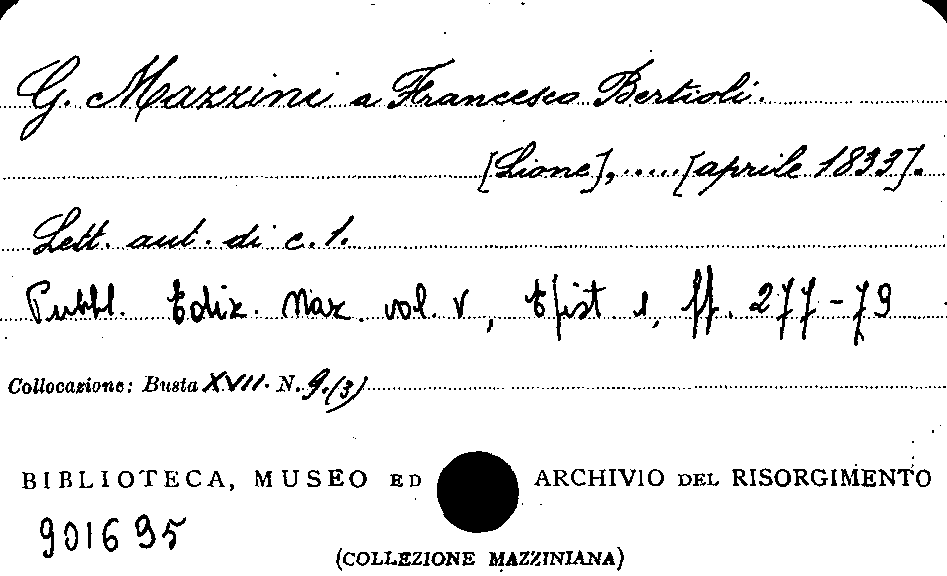 G. Mazzini a Francesco Bertioli.
[Lione], ..... [aprile 1833].
Lett. aut. di c. 1.
Pubbl. Ediz. Naz. vol. V, Epist. 1, ff. 277-79
Collocazione: Busta XVII. N. 9.(3)
BIBLIOTECA, MUSEO ED ARCHIVIO DEL RISORGIMENTO
901695
(COLLEZIONE MAZZINIANA)